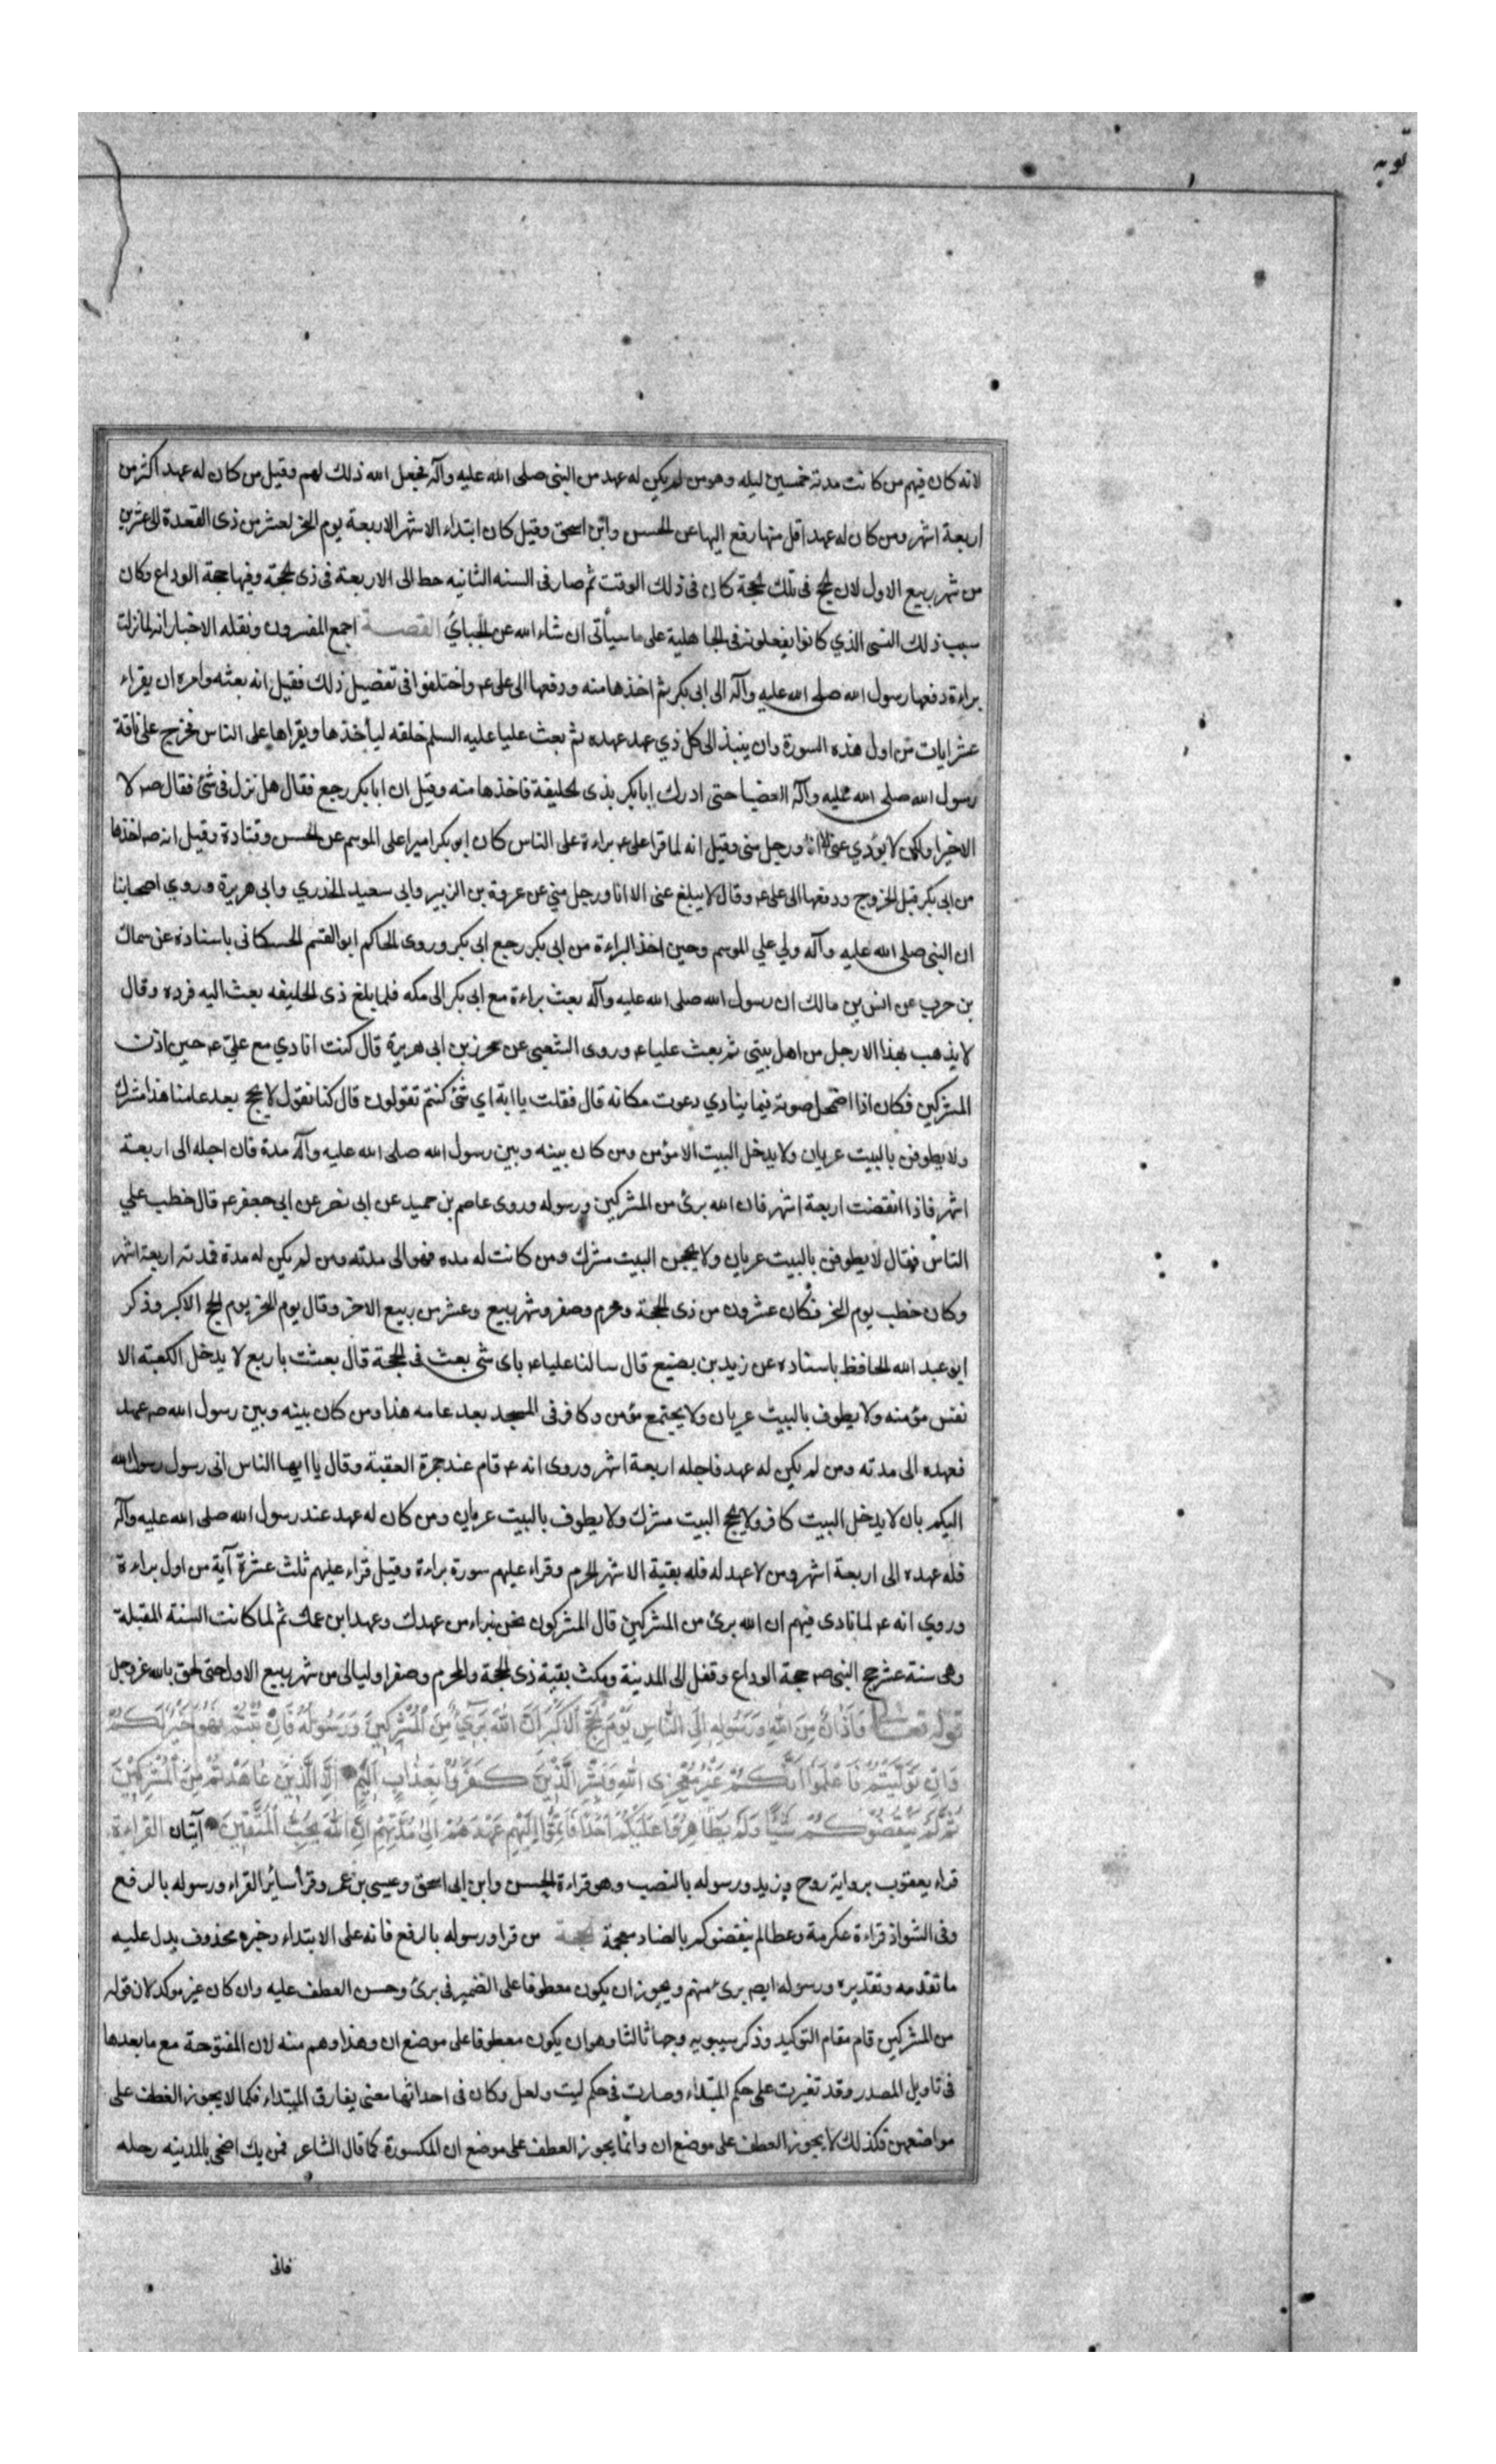 توبه
لانه كان فيهم من كانت مدته خمسين ليله وهو من لم يكن له عهد من النبى صلى الله عليه وآله فجعل الله ذلك لهم وقيل من كان له عهد اكثر من
اربعة اشهر ومن كان له عهد اقل منها رفع اليها عن الحسن وابن اسحق وقيل كان ابتداء الاشهر الاربعة يوم النحر لعشر من ذى القعدة الى عشرين
من شهر ربيع الاول لان الحج فى تلك الحجة كان فى ذلك الوقت ثم صار فى السنه الثانيه حط الى الاربعة فى ذى الحجة وفيها حجة الوداع وكان
سبب ذلك النسى الذي كانوا يفعلونه فى الجاهلية على ما سيأتى ان شاء الله عن الجبائي القصة اجمع المفسرون ونقله الاخبار انه لما نزلت
براءة دفعها رسول الله صلى الله عليه وآله الى ابى بكر ثم اخذها منه ودفعها الى على ع واختلفوا فى تفضيل ذلك فقيل انه بعثه وامره ان يقراء
عشر ايات من اول هذه السورة وان ينبذ الى كل ذي عهد عهده ثم بعث عليا عليه السلم خلفه ليأخذها ويقراها على الناس فخرج على ناقة
رسول الله صلى الله عليه وآله العضبا حتى ادرك ابا بكر بذى الحليفة فاخذها منه وقيل ان ابا بكر رجع فقال هل نزل فى شئ فقال ص لا
الا خيرا ولكن لا يؤدي عنى الا انا او رجل منى وقيل انه لما قرا على ع براءة على الناس كان ابو بكر اميرا على الموسم عن الحسن وقتادة وقيل انه ص اخذها
من ابى بكر قبل الخروج ودفعها الى على ع وقال لا يبلغ عنى الا انا ورجل مني عن عروة بن الزبير وابى سعيد الخدري وابى هريرة وروي اصحابنا
ان النبى صلى الله عليه وآله ولي علي الموسم وحين اخذ البراءة من ابى بكر رجع ابى بكر وروى الحاكم ابو القسم الحسكانى باسناده عن سماك
بن حرب عن انس بن مالك ان رسول الله صلى الله عليه وآله بعث براءة مع ابى بكر الى مكه فلما بلغ ذى الحليفه بعث اليه فرده وقال
لا يذهب بهذا الا رجل من اهل بيتى ثم بعث عليا ع وروى الشعبى عن محرز بن ابى هريرة قال كنت انادي مع علي ع حين اذن
المشركين فكان اذا اضمحل صوته فيما ينادي دعوت مكانه قال فقلت يا ابة اي شئ كنتم تقولون قال كنا نقول لا يحج بعد عامنا هذا مشرك
ولا يطوفن بالبيت عريان ولا يدخل البيت الا مؤمن ومن كان بينه وبين رسول الله صلى الله عليه وآله مدة فان اجله الى اربعة
اشهر فاذا انقضت اربعة اشهر فان الله برئ من المشركين ورسوله وروى عاصم بن حميد عن ابى نصر عن ابى جعفر ع قال خطب علي
الناس فقال لا يطوفن بالبيت عريان ولا يحجن البيت مشرك ومن كانت له مده فهو الى مدته ومن لم يكن له مدة فمدته اربعة اشهر
وكان خطب يوم النحر فكان عشرون من ذى الحجة ومحرم وصفر وشهر ربيع وعشر من ربيع الاخر وقال يوم النحر يوم الحج الاكبر وذكر
ابو عبد الله الحافظ باسناده عن زيد بن بصيع قال سالنا عليا ع باى شى بعث فى الحجة قال بعثت باربع لا يدخل الكعبة الا
نفس مؤمنه ولا يطوف بالبيت عريان ولا يجتمع مؤمن وكافر فى المسجد بعد عامه هذا ومن كان بينه وبين رسول الله ص عهد
فعهده الى مدته ومن لم يكن له عهد فاجله اربعة اشهر وروى انه ع قام عند جمرة العقبة وقال يا ايها الناس انى رسول رسول الله
اليكم بان لا يدخل البيت كافر ولا يحج البيت مشرك ولا يطوف بالبيت عريان ومن كان له عهد عند رسول الله صلى الله عليه وآله
فله عهده الى اربعة اشهر ومن لا عهد له فله بقية الاشهر الحرم وقراء عليهم سورة براءة وقيل قراء عليهم ثلث عشرة آية من اول براءة
وروي انه ع لما نادى فيهم ان الله برئ من المشركين قال المشركون نحن نبراء من عهدك وعهد ابن عمك ثم لما كانت السنة المقبلة
وهى سنة عشر حج النبى ص حجة الوداع وقفل الى المدينة ومكث بقية ذى الحجة والمحرم وصفر او ليالى من شهر ربيع الاول حتى لحق بالله عز وجل
قوله تعالى وَأَذَانٌ مِنَ اللهِ وَرَسُولِهِ إِلَى النَّاسِ يَوْمَ الْحَجِّ الْأَكْبَرِ أَنَّ اللهَ بَرِيءٌ مِنَ الْمُشْرِكِينَ وَرَسُولُهُ فَإِنْ تُبْتُمْ فَهُوَ خَيْرٌ لَكُمْ
وَإِنْ تَوَلَّيْتُمْ فَاعْلَمُوا أَنَّكُمْ غَيْرُ مُعْجِزِي اللهِ وَبَشِّرِ الَّذِينَ كَفَرُوا بِعَذَابٍ أَلِيمٍ إِلَّا الَّذِينَ عَاهَدْتُمْ مِنَ الْمُشْرِكِينَ
ثُمَّ لَمْ يَنْقُصُوكُمْ شَيْئًا وَلَمْ يُظَاهِرُوا عَلَيْكُمْ أَحَدًا فَأَتِمُّوا إِلَيْهِمْ عَهْدَهُمْ إِلَى مُدَّتِهِمْ إِنَّ اللهَ يُحِبُّ الْمُتَّقِينَ آيتان القراءة
قراء يعقوب برواية روح وزيد ورسوله بالنصب وهو قراءة الحسن وابن ابى اسحق وعيسى بن عمر وقرأ سائر القراء ورسوله بالرفع
وفى الشواذ قراءة عكرمة وعطا لم ينقضوكم بالضاد معجمة الحجة من قرا ورسوله بالرفع فانه على الابتداء وخبره محذوف يدل عليه
ما تقدمه وتقديره ورسوله ايض برئ منهم ويجوز ان يكون معطوفا على الضمير فى برئ وحسن العطف عليه وان كان غير موكد لان قوله
من المشركين قام مقام التوكيد وذكر سيبويه وجها ثالثا وهو ان يكون معطوفا على موضع ان وهذا وهم منه لان المفتوحة مع ما بعدها
فى تاويل المصدر وقد تغيرت على حكم المبتداء وصارت فى حكم ليت ولعل وكان فى احداثها معنى يفارق المبتداء فكما لا يجوز العطف على
مواضعهن فكذلك لا يجوز العطف على موضع ان وانما يجوز العطف على موضع ان المكسورة كما قال الشاعر فمن يك اضحى بالمدينه رحله
فانى